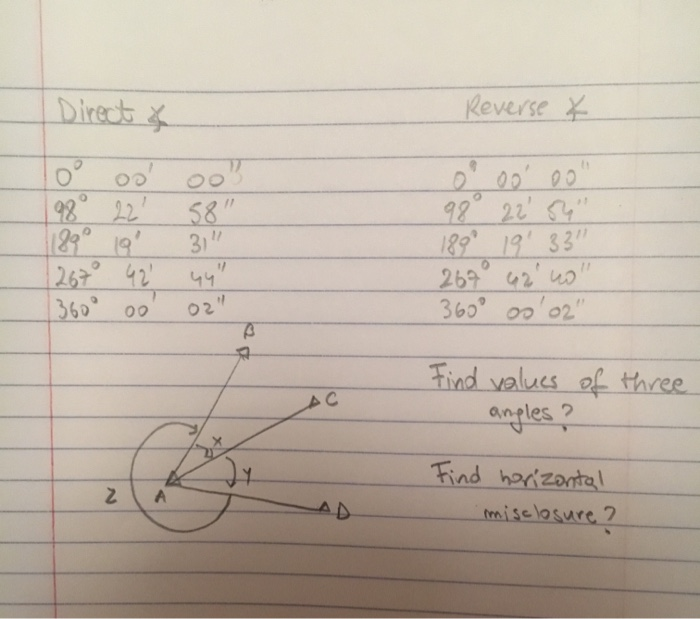 Direct ∡ Reverse ∡
0° 00' 00" 0° 00' 00"
98° 22' 58" 98° 22' 54"
189° 19' 31" 189° 19' 33"
267° 42' 44" 267° 42' 40"
360° 00' 02" 360° 00' 02"
B
Find values of three
C
angles?
x
y
Find horizontal
A
Z
D
misclosure?